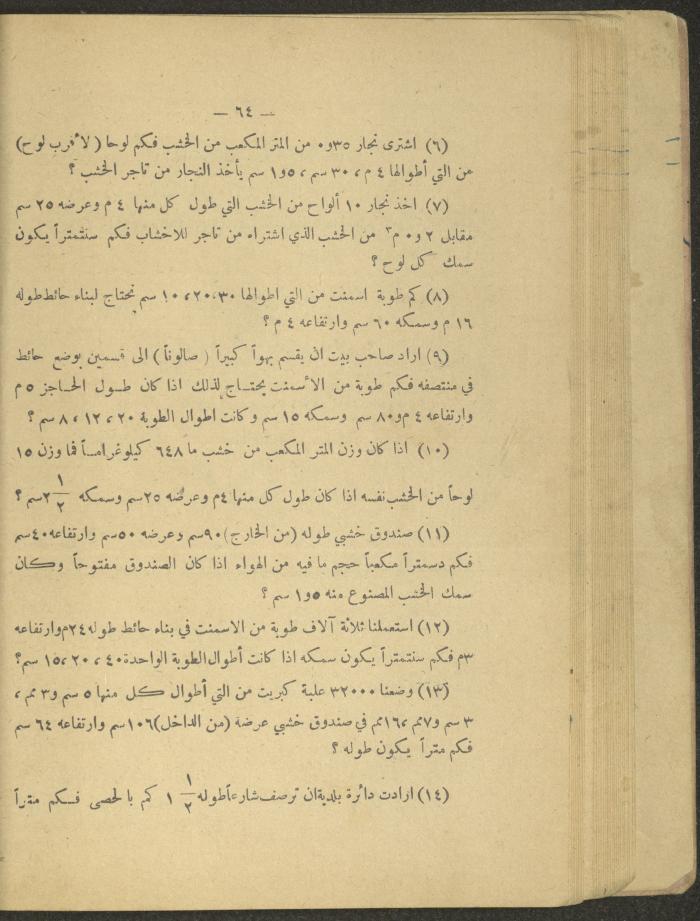 — ٦٤ —
(٦) اشترى نجار ٣٥و٠ من المتر المكعب من الخشب فكم لوحا (لأقرب لوح)
من التي أطوالها ٤ م ، ٣٠ سم ، ٥و١ سم يأخذ النجار من تاجر الخشب ؟
(٧) اخذ نجار ١٠ ألواح من الخشب التي طول كل منها ٤ م وعرضه ٢٥ سم
مقابل ٢و٠ م٣ من الخشب الذي اشتراه من تاجر للاخشاب فكم سنتمتراً يكون
سمك كل لوح ؟
(٨) كم طوبة اسمنت من التي اطوالها ٣٠،٢٠،١٠ سم نحتاج لبناء حائط طوله
١٦ م وسمكه ٦٠ سم وارتفاعه ٤ م ؟
(٩) اراد صاحب بيت ان يقسم بهواً كبيراً (صالوناً) الى قسمين بوضع حائط
في منتصفه فكم طوبة من الأسمنت يحتاج لذلك اذا كان طول الحاجز ٥ م
وارتفاعه ٤ م و٨٠ سم وسمكه ١٥ سم وكانت اطوال الطوبة ٢٠ ، ١٢ ، ٨ سم ؟
(١٠) اذا كان وزن المتر المكعب من خشب ما ٦٤٨ كيلوغراماً فما وزن ١٥
لوحاً من الخشب نفسه اذا كان طول كل منها ٤م وعرضه ٢٥سم وسمكه ٢ ١/٢ سم ؟
(١١) صندوق خشبي طوله (من الخارج) ٩٠سم وعرضه ٥٠سم وارتفاعه ٤٠سم
فكم دسمتراً مكعباً حجم ما فيه من الهواء اذا كان الصندوق مفتوحاً وكان
سمك الخشب المصنوع منه ٥و١ سم ؟
(١٢) استعملنا ثلاثة آلاف طوبة من الاسمنت في بناء حائط طوله ٢٤م وارتفاعه
٣م فكم سنتمتراً يكون سمكه اذا كانت أطوال الطوبة الواحدة ٤٠ ، ٢٠ ، ١٥ سم ؟
(١٣) وضعنا ٣٢٠٠٠ علبة كبريت من التي أطوال كل منها ٥ سم و٣ مم ،
٣ سم و٧مم ،١٦مم في صندوق خشبي عرضه (من الداخل) ١٠٦سم وارتفاعه ٦٤ سم
فكم متراً يكون طوله ؟
(١٤) ارادت دائرة بلدية ان ترصف شارعاً طوله ١ ١/٢ كم بالحصى فكم متراً